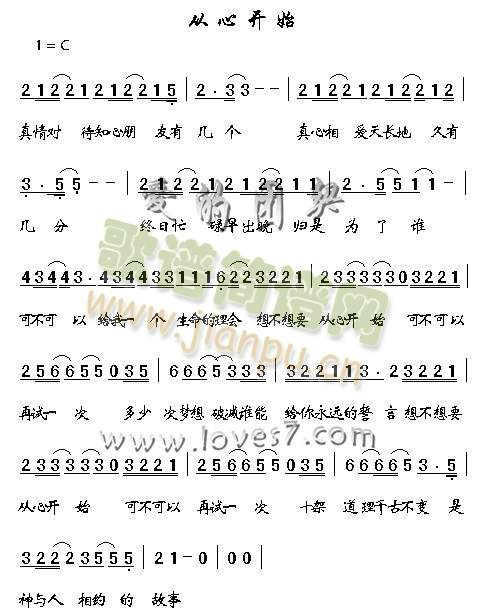 从心开始
1=C
2122121221215 | 2·33-- | 2122121221212 |
真情对 待知心朋 友有 几个 真心相 爱天长地 久有
3·55-- | 2122121221221 | 2·5511- |
几分 终日忙 碌早出晚 归是 为 了 谁
43443·43443311162223221 | 2333333033221 |
可不可 以 给我一个 生命的理会 想不想要 从心开 始 可不可以
256655035 | 6665333 | 322113·23221
再试一 次 多少 次梦想 破灭谁能 给你永远的誓 言 想不想要
www.loves7.com
2333333033221 | 256655035 | 6665663·5 |
从心开 始 可不可以 再试一 次 十架 道理千古不变 是
32223555 | 21-0 | 00 |
神与人 相约 的 故事
爱的团契
歌谱简谱网
www.jianpu.cn